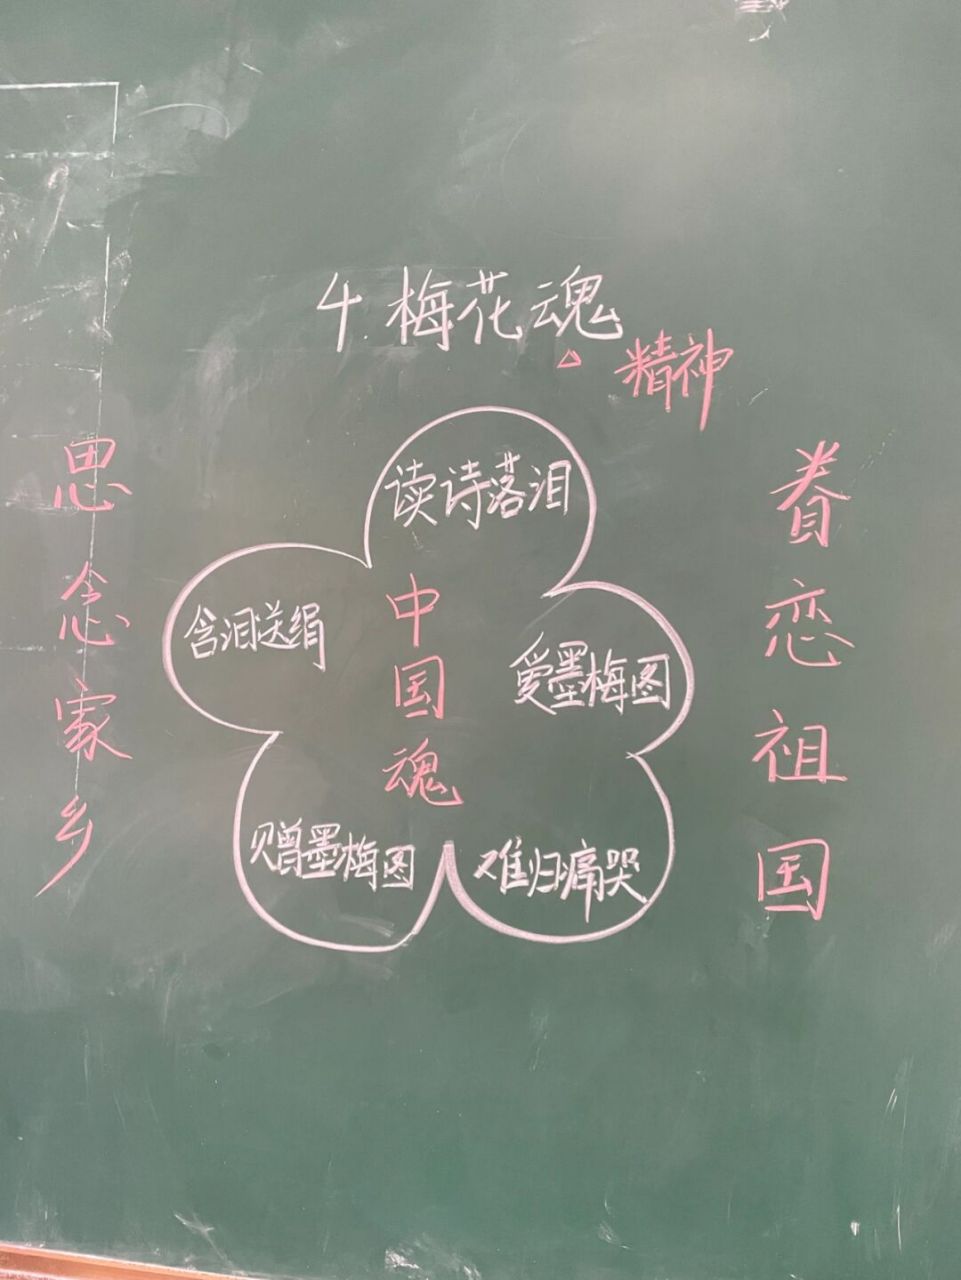 4.梅花魂
精神
读诗落泪
含泪送绢
爱墨梅图
赠墨梅图
难归痛哭
中国魂
思念家乡
眷恋祖国